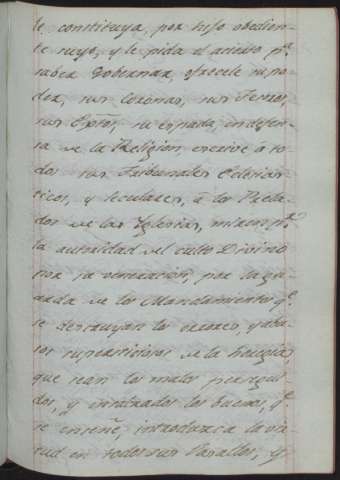 se constituya, por hijo obedien-
te suyo, y le pida el acierto p.ª
saber Governar, ofrecele su po-
der, sus Coronas, sus Reynos,
sus su espada, en defen-
sa de la Religion, escrive á to-
dos sus Tribunales Eclesias-
ticos, y seculares, á los Prela-
dos de las Yglesias, miren p.ª
la autoridad del culto Divino
por su veneracion, por la gu-
arda de los Mandamientos q.e
se destruyan los errores, y abu-
sos supersticiosos de la heregia
que sean los malos persegui-
dos, y ensalzados los buenos, q.e
se enseñe, introduzca la vir-
tud en todos sus Vasallos, y